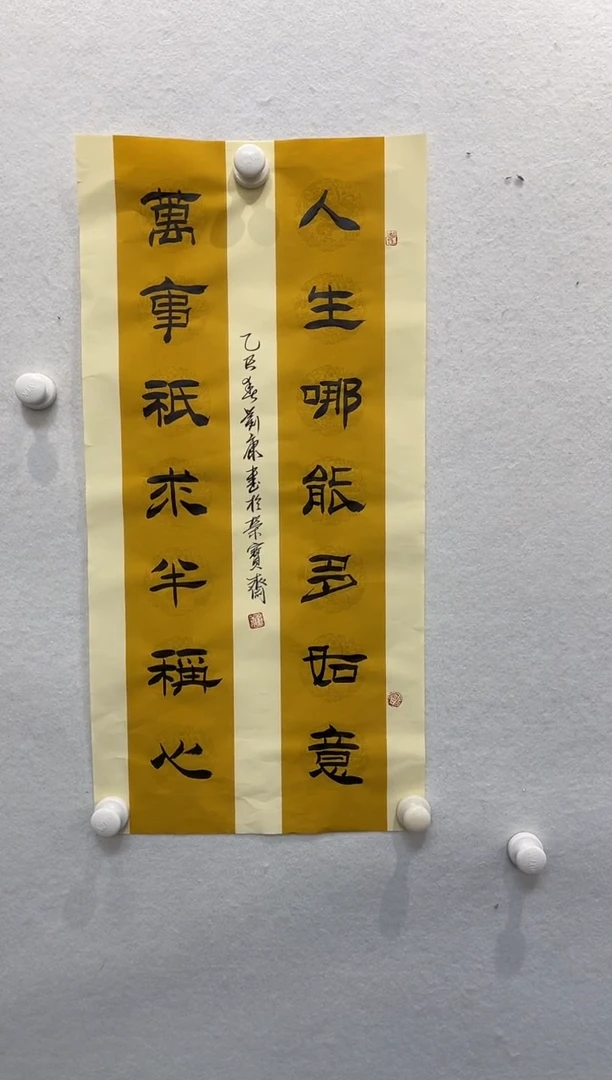 人生哪能多如意
萬事祇求半稱心
乙巳春前康書於榮寶齋